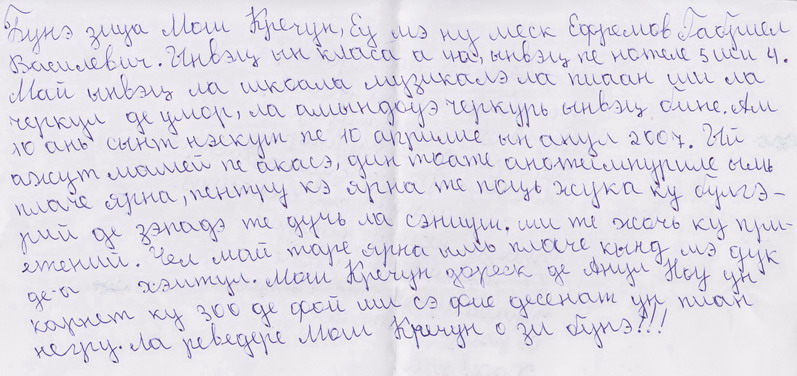 Бунэ зиуа Мош Кречун, Еу мэ ну меск Ефремов Габриел
Василевич. Ынвэц ын класа а на, ынвэц пе нотеле 5 ши 4.
Май ынвэц ла школа музикалэ ла пиан ши ла
черкул де умор, ла амындоуэ черкурь ынвэц бине. Ам
10 ань сынт нэскут пе 10 априлие ын анул 2007. Ый
ажут мамей пе акасэ, дин тоате анотимпуриле ымь
плаче ярна, пентру кэ ярна те поць жука ку булгэ-
рий де зэпадэ те дучь ла сэниуш. ши те жочь ку при-
етений. Чел май таре ярна ымь плаче кынд мэ дук
де-а хэитул. Мош Кречун дореск де Анул Ноу ун
карнет ку 300 де фой ши сэ фие десенат ун пиан
негру. Ла реведере Мош Кречун о зи бунэ!!!